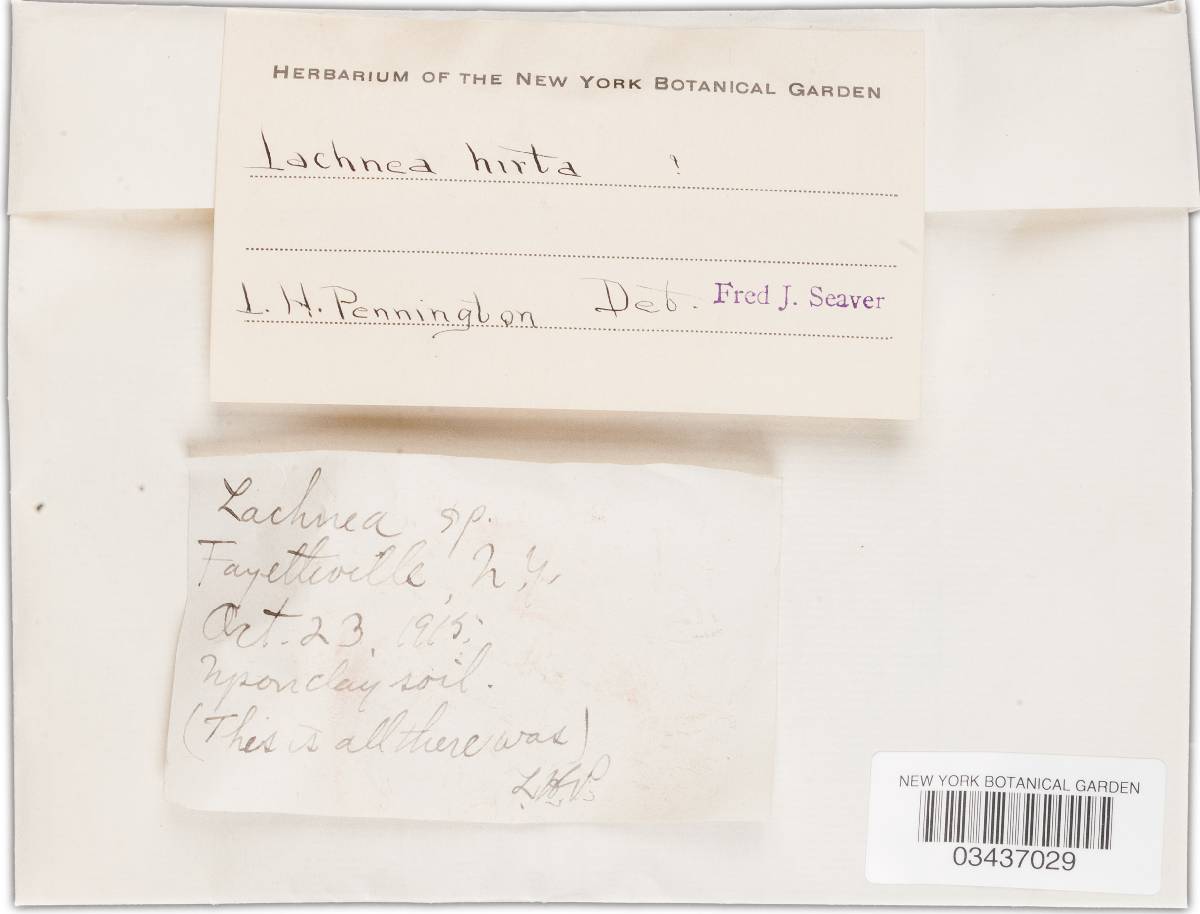 HERBARIUM OF THE NEW YORK BOTANICAL GARDEN
Lachnea hirta ?
L. H. Pennington Det. Fred J. Seaver
Lachnea sp.
Fayetteville, N.Y.
Oct. 23, 1915.
Upon clay soil.
(This is all there was)
L.H.P.
NEW YORK BOTANICAL GARDEN
03437029